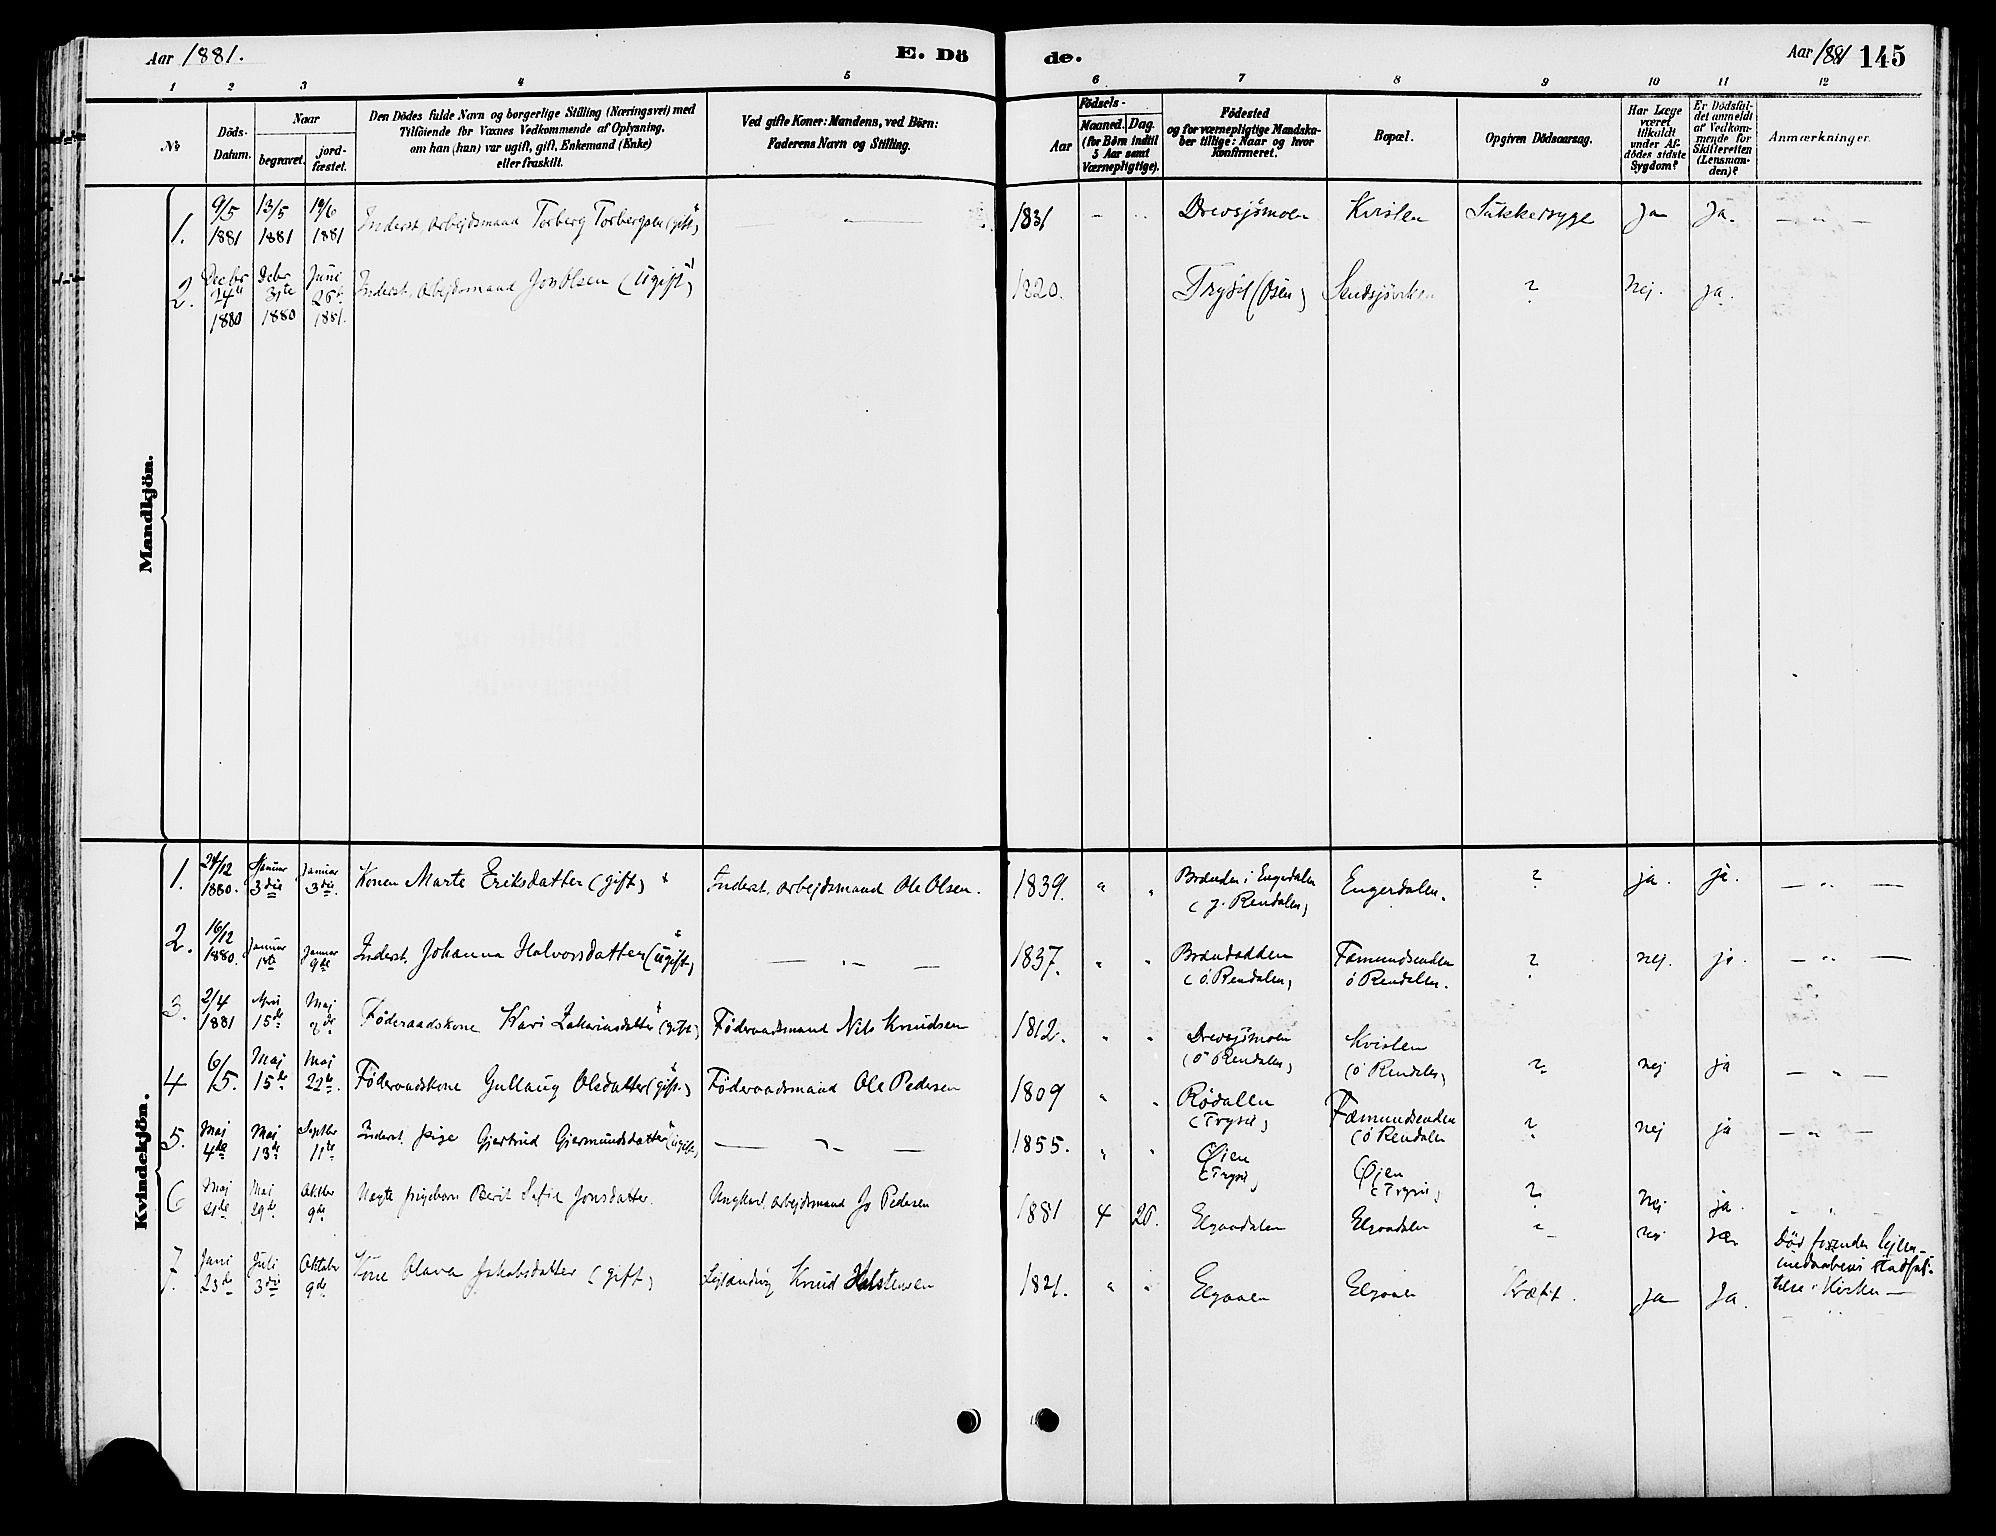 Aar 1881.
E. Dö
de.
Aar 1881 145
1 2 3 4 5 6 7 8 9 10 11 12
No
Döds-
Datum.
Naar
begravet.
jord-
fæstet.
Den Dödes fulde Navn og borgerlige Stilling (Næringsvei) med
Tilföiende for Voxnes Vedkommende af Oplysning,
om han (hun) var ugift, gift, Enkemand (Enke)
eller fraskilt.
Ved gifte Koner: Mandens, ved Börn:
Faderens Navn og Stilling.
Födsels-
Aar
Maaned. Dag.
(for Børn indtil
5 Aar samt
Værnepligtige).
Födested
og for værnepligtige Mandska-
ber tillige: Naar og hvor
konfirmeret.
Bopæl.
Opgiven Dödsaarsag.
Har Læge
været
tilkaldt
under Af-
dödes sidste
Sygdom?
Er Dödsfal-
det anmeldt
af Vedkom-
mende for
Skifteretten
(Lensman-
den)?
Anmærkninger.
Mandkjön.
1. 9/5 1881 13/5 1881 19/6 1881 Inderst, arbejdsmand Torberg Torbergsen (gift) 1831 Drevsjømoen Kvislen Sukkersyge Ja Ja.
2. Decbr 24de 1880 Debr 31te 1880 Juni 26de 1881. Inderst, arbejdsmand Jon Olsen (ugift) 1820. Trysil (Osen) ? nej. ja.
Kvindekjön.
1. 24/12 1880. Januar 3die Januar 3die. Konen Marte Eriksdatter (gift) Inderst, arbejdsmand Ole Olsen. 1839. Brænden i Engerdalen (y. Rendalen) Engerdalen. ? ja. ja.
2. 16/12 1880. Januar 1ste Januar 9de Inderst. Johanna Halvorsdatter (ugift) 1837. (ö. Rendalen) Fæmundsenden ö Rendalen. ? nej. ja.
3. 2/4 1881 April 15de Maj Føderaadskone Kari Zakariasdatter (gift) Føderaadsmand Nils Knudsen 1812. Drevsjømoen (ö Rendalen) Kvislen (ö Rendalen) ? nej ja
4 6/5. Maj 15de Maj 22de. Føderaadskone Gullaug Olsdatter (gift) Føderaadsmand Ole Pedersen 1809 Rødalen (Trysil) Fæmundsenden (ö Rendalen ? nej ja
5. Maj 4de Maj 13de Septbr 11te Inderst, pige Gjertrud Gjermundsdatter (ugift) 1855. Øien (Trysil) Øien (Trysil) ? nej ja.
6 Maj Maj 29de Oktbr 9de Uægte pigebarn Berit Sofie Jonsdatter Ungkarl, arbejdsmand Jo Pedersen 1881 4 20. Elgaadalen Elgaadalen nej
7. Juni 23de Juli 3die Oktober 9de Kone Olava Jakobsdatter (gift) Lejlænding Knud Halstensen 1821. Elgaaen Elgaaen Kræft. ja Ja.